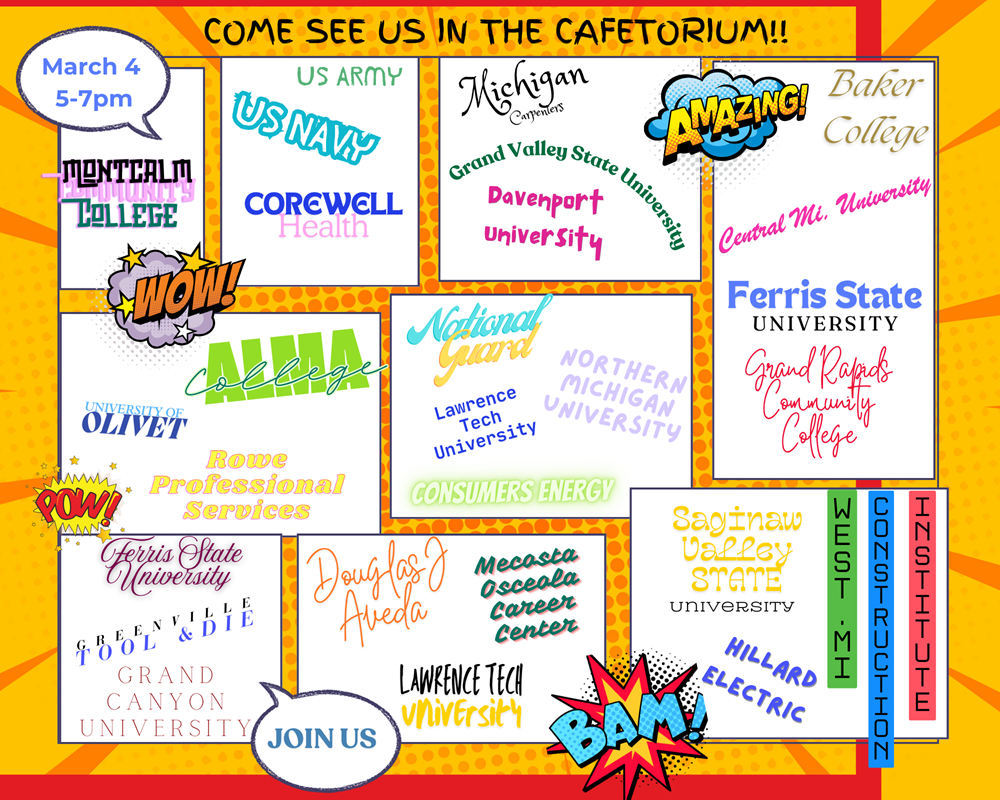 COME SEE US IN THE CAFETORIUM!!
March 4
5-7pm
MONTCALM
COMMUNITY
COLLEGE
US ARMY
US NAVY
COREWELL
Health
Michigan
Carpenters
Grand Valley State University
Davenport
university
AMAZING!
Baker
College
Central Mi. University
Ferris State
UNIVERSITY
Grand Rapids
Community
College
WOW!
ALMA
College
UNIVERSITY OF
OLIVET
Rowe
Professional
Services
POW!
National
Guard
NORTHERN
MICHIGAN
UNIVERSITY
Lawrence
Tech
University
CONSUMERS ENERGY
Ferris State
University
GREENVILLE
TOOL & DIE
GRAND
CANYON
UNIVERSITY
JOIN US
Douglas J
Aveda
Mecosta
Osceola
Career
Center
LAWRENCE TECH
UNIVERSITY
BAM!
Saginaw
Valley
STATE
UNIVERSITY
HILLARD
ELECTRIC
WEST MI
CONSTRUCTION
INSTITUTE